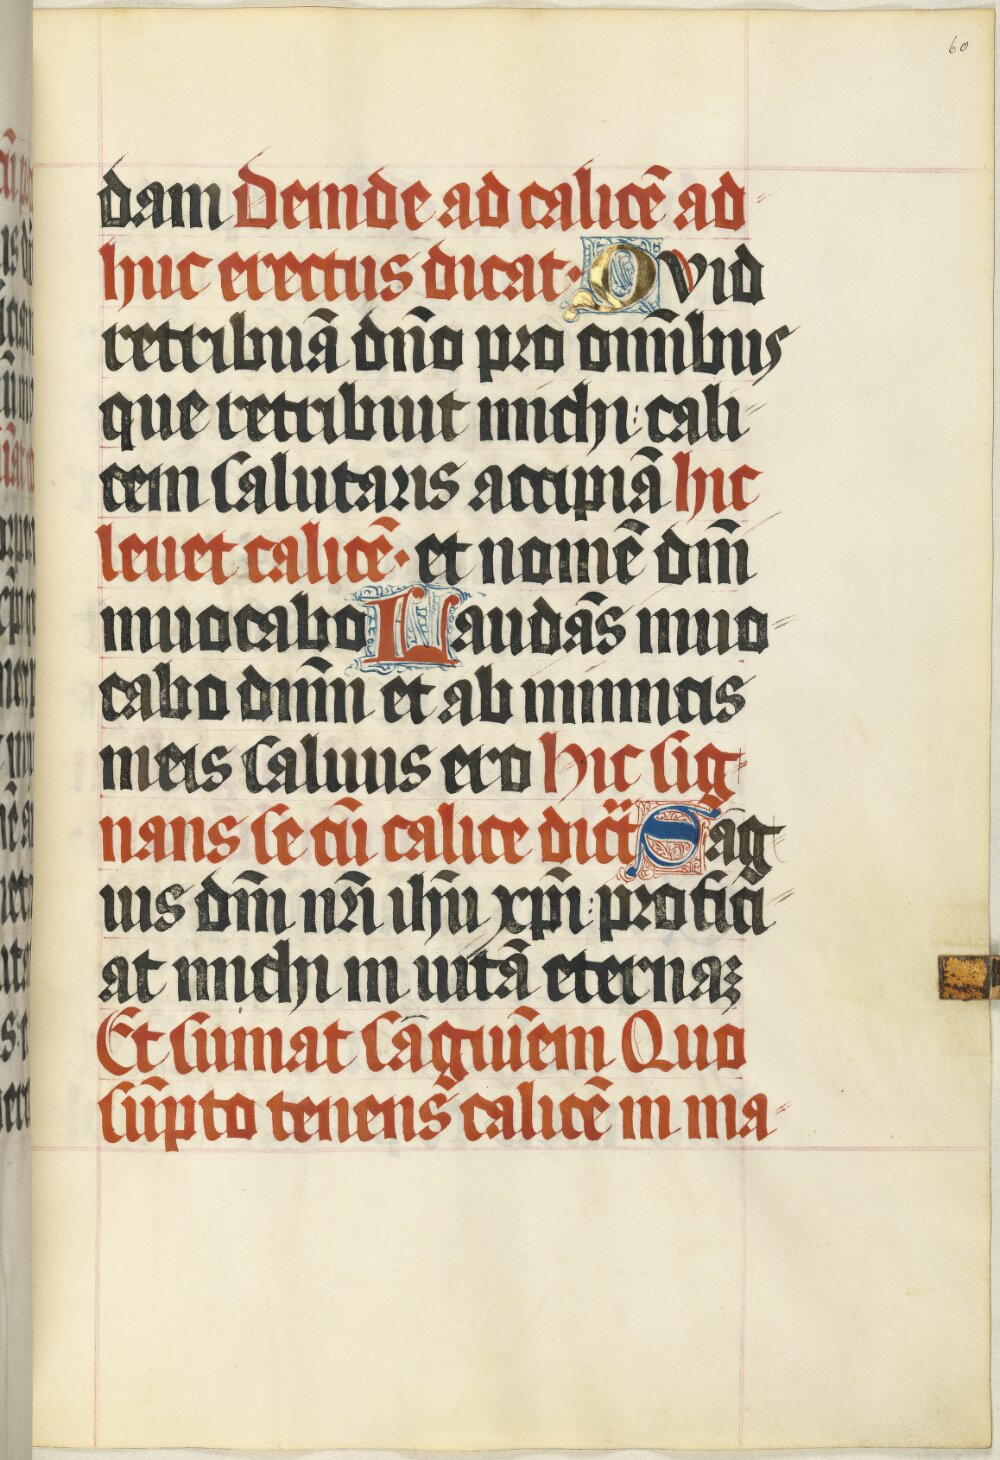 60
dam Deinde ad calicē ad
huc erectus dicat· Quid
retribuā dn̄o pro omībus
que retribuit michi: cali
cem salutaris accipiā hic
leuet calicē· et nomē dm̄
inuocabo Laudās inuo
cabo dnm̄ et ab inimicis
meis saluus ero hic sig
nans se cū calice dict̄ Sāg
uis dm̄ nr̄i ihū xp̄i: profici
at michi in uitā eternaꝫ
Et sumat sāguīem Quo
sūpto tenens calicē in ma